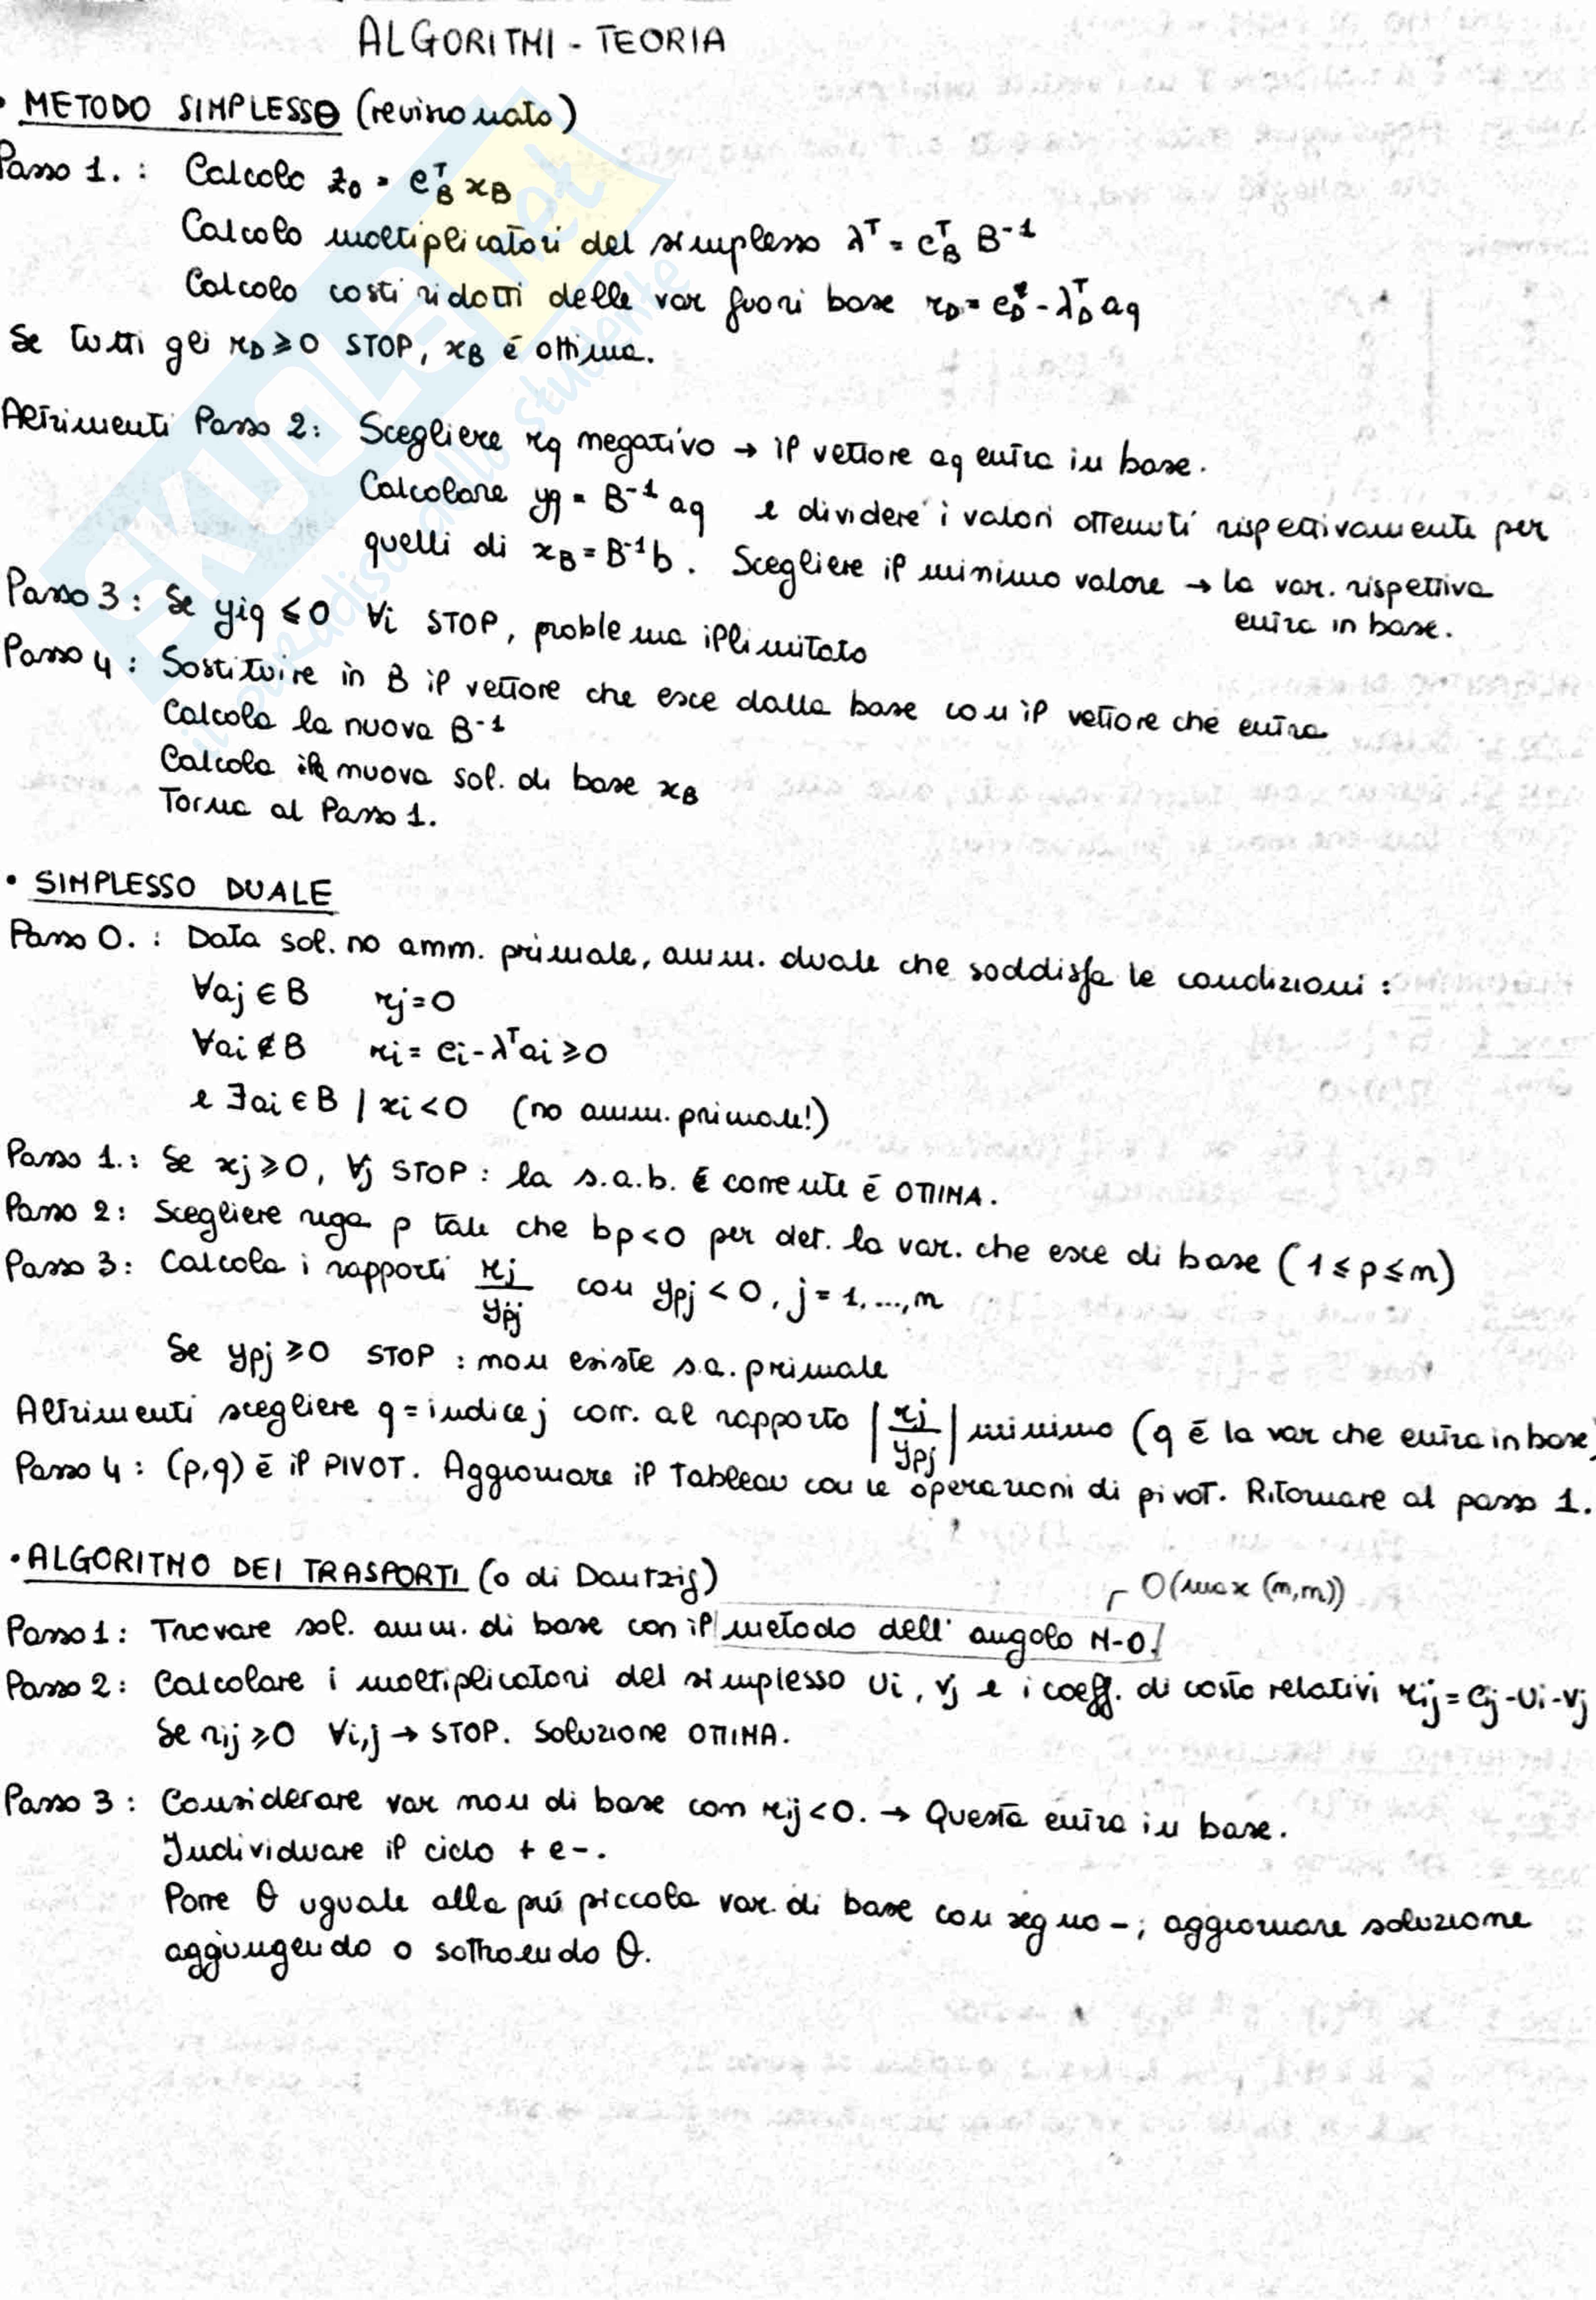 ALGORITMI - TEORIA
• METODO SIMPLESSO (revisionato)
Passo 1. : Calcolo z₀ = c_B^T x_B
Calcolo moltiplicatori del simplesso λ^T = c_B^T B^-1
Calcolo costi ridotti delle var fuori base r_D = c_D^T - λ_D^T aq
Se tutti gli r_D ≥ 0 STOP, x_B é ottima.
Altrimenti Passo 2: Scegliere rq negativo → il vettore aq entra in base.
Calcolare yq = B^-1 aq e dividere i valori ottenuti rispettivamente per
quelli di x_B = B^-1 b. Scegliere il minimo valore → la var. rispettiva
entra in base.
Passo 3 : Se yiq ≤ 0 ∀i STOP, problema illimitato
Passo 4 : Sostituire in B il vettore che esce dalla base con il vettore che entra
Calcola la nuova B^-1
Calcola la nuova sol. di base x_B
Torna al Passo 1.
• SIMPLESSO DUALE
Passo 0. : Data sol. no amm. primale, amm. duale che soddisfa le condizioni :
∀aj ∈ B rj = 0
∀ai ∉ B ri = ci - λ^T ai ≥ 0
e ∃ai ∈ B | xi < 0 (no amm. primale!)
Passo 1. : Se xj ≥ 0, ∀j STOP : la s.a.b. corrente é OTTIMA.
Passo 2 : Scegliere riga p tale che bp < 0 per det. la var. che esce di base (1 ≤ p ≤ m)
Passo 3 : Calcola i rapporti rj/ypj con ypj < 0, j = 1, ..., n
Se ypj ≥ 0 STOP : non esiste s.a. primale
Altrimenti scegliere q = indice j corr. al rapporto |rj/ypj| minimo (q é la var che entra in base)
Passo 4 : (p,q) é il PIVOT. Aggiornare il Tableau con le operazioni di pivot. Ritornare al passo 1.
• ALGORITMO DEI TRASPORTI (o di Dantzig)
O(max (m,n))
Passo 1 : Trovare sol. amm. di base con il metodo dell' angolo N-O.
Passo 2 : Calcolare i moltiplicatori del simplesso ui, vj e i coeff. di costo relativi rij = cij - ui - vj
Se rij ≥ 0 ∀i,j → STOP. Soluzione OTTIMA.
Passo 3 : Considerare var non di base con rij < 0. → Questa entra in base.
Individuare il ciclo + e -.
Porre θ uguale alla piú piccola var. di base con segno - ; aggiornare soluzione
aggiungendo o sottraendo θ.
SKUOLA.net
il paradiso dello studente